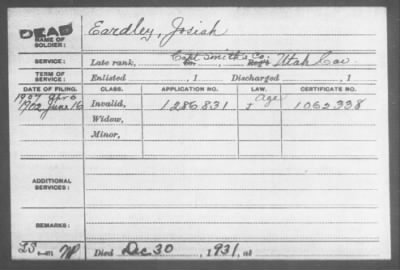 DEAD
NAME OF SOLDIER: Eardley, Josiah
SERVICE: Late rank, Capt Smith's Co. Utah Cav
TERM OF SERVICE: Enlisted , 1 Discharged , 1
DATE OF FILING. CLASS. APPLICATION NO. LAW. CERTIFICATE NO.
1907 Apr 6 Age
1902 June 16 Invalid, 1286831 J 1062338
Widow,
Minor,
ADDITIONAL SERVICES:
REMARKS:
Died Dec 30 , 1931, at